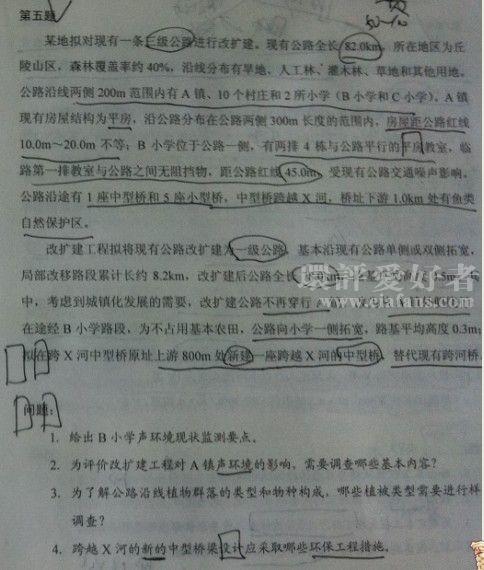 第五题
某地拟对现有一条三级公路进行改扩建。现有公路全长 82.0km，所在地区为丘
陵山区，森林覆盖率约 40%，沿线分布有旱地、人工林、灌木林、草地和其他用地。
公路沿线两侧 200m 范围内有 A 镇、10 个村庄和 2 所小学（B 小学和 C 小学）。A 镇
现有房屋结构为平房，沿公路分布在公路两侧 300m 长度的范围内，房屋距公路红线
10.0m～20.0m 不等；B 小学位于公路一侧，有两排 4 栋与公路平行的平房教室，临
路第一排教室与公路之间无阻挡物，距公路红线 45.0m，受现有公路交通噪声影响。
公路沿途有 1 座中型桥和 5 座小型桥，中型桥跨越 X 河，桥址下游 1.0km 处有鱼类
自然保护区。
改扩建工程拟将现有公路改扩建为一级公路，基本沿现有公路单侧或双侧拓宽，
局部改移路段累计长约 8.2km，改扩建后公路全长
中，考虑到城镇化发展的需要，改扩建公路不再穿行 A
在途经 B 小学路段，为不占用基本农田，公路向小学一侧拓宽，路基平均高度 0.3m；
拟在跨 X 河中型桥原址上游 800m 处新建一座跨越 X 河的中型桥，替代现有跨河桥。
環評愛好者
www.eiafans.com
问题：
1. 给出 B 小学声环境现状监测要点。
2. 为评价改扩建工程对 A 镇声环境的影响，需要调查哪些基本内容？
3. 为了解公路沿线植物群落的类型和物种构成，哪些植被类型需要进行样
方调查？
4. 跨越 X 河的新的中型桥梁设计应采取哪些环保工程措施。